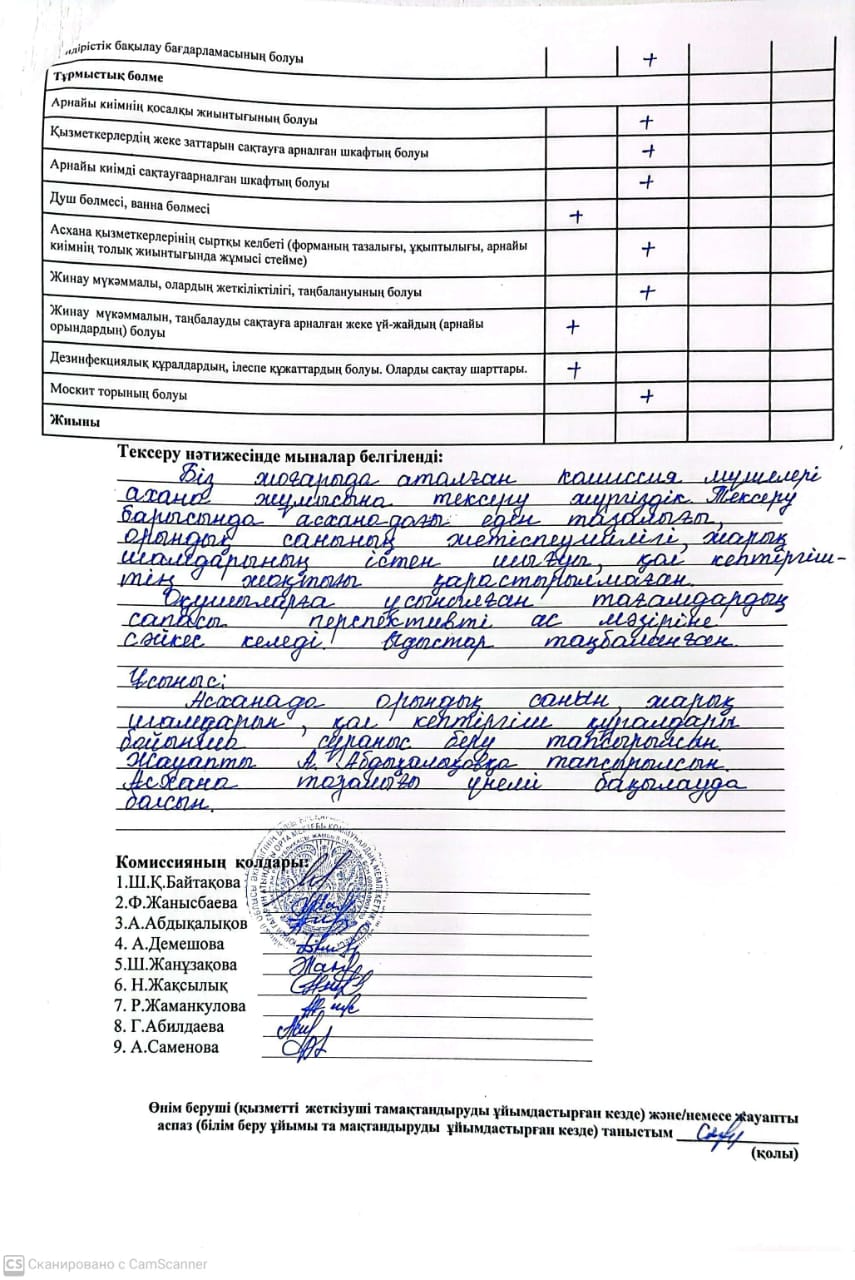 діріістік бақылау бағдарламасының болуы +
Тұрмыстық бөлме
Арнайы киімнің қосалқы жиынтығының болуы +
Қызметкерлердің жеке заттарын сақтауға арналған шкафтың болуы +
Арнайы киімді сақтауғаарналған шкафтың болуы +
Душ бөлмесі, ванна бөлмесі +
Асхана қызметкерлерінің сыртқы келбеті (форманың тазалығы, ұқыптылығы, арнайы
киімнің толық жиынтығында жұмысі стейме) +
Жинау мүкәммалы, олардың жеткіліктілігі, таңбалануының болуы +
Жинау мүкәммалын, таңбалауды сақтауға арналған жеке үй-жайдың (арнайы
орындардың) болуы +
Дезинфекциялық құралдардың, ілеспе құжаттардың болуы. Оларды сақтау шарттары. +
Москит торының болуы +
Жиыны
Тексеру нәтижесінде мыналар белгіленді:
Біз жоғарыда аталған комиссия мүшелері
ахана жұмысына тексеру жүргіздік. Тексеру
барысында асханадағы еден тазалығы,
орындық санының жетіспеушілігі, жарық
шамдарының істен шығуы, қол кептіргіш-
тің жоқтығы қарастырылмаған.
Оқушыларға ұсынылған тағамдардың
сапасы перспективті ас мәзіріне
сәйкес келеді. Ыдыстар таңбаланған.
Ұсыныс:
Асханада орындық санын, жарық
шамдарын, қол кептіргіш құралдары
бойынша сұраныс беру тапсырылсын.
Жауапты А. Абдықалықовқа тапсырылсын.
Асхана тазалығы үнемі бақылауда
болсын.
Комиссияның қолдары:
1.Ш.Қ.Байтақова
2.Ф.Жанысбаева
3.А.Абдықалықов
4. А.Демешова
5.Ш.Жанұзақова
6. Н.Жақсылық
7. Р.Жаманкулова
8. Г.Абилдаева
9. А.Саменова
Өнім беруші (қызметті жеткізуші тамақтандыруды ұйымдастырған кезде) және/немесе жауапты
аспаз (білім беру ұйымы та мақтандыруды ұйымдастырған кезде) таныстым
(қолы)
CS Сканировано с CamScanner